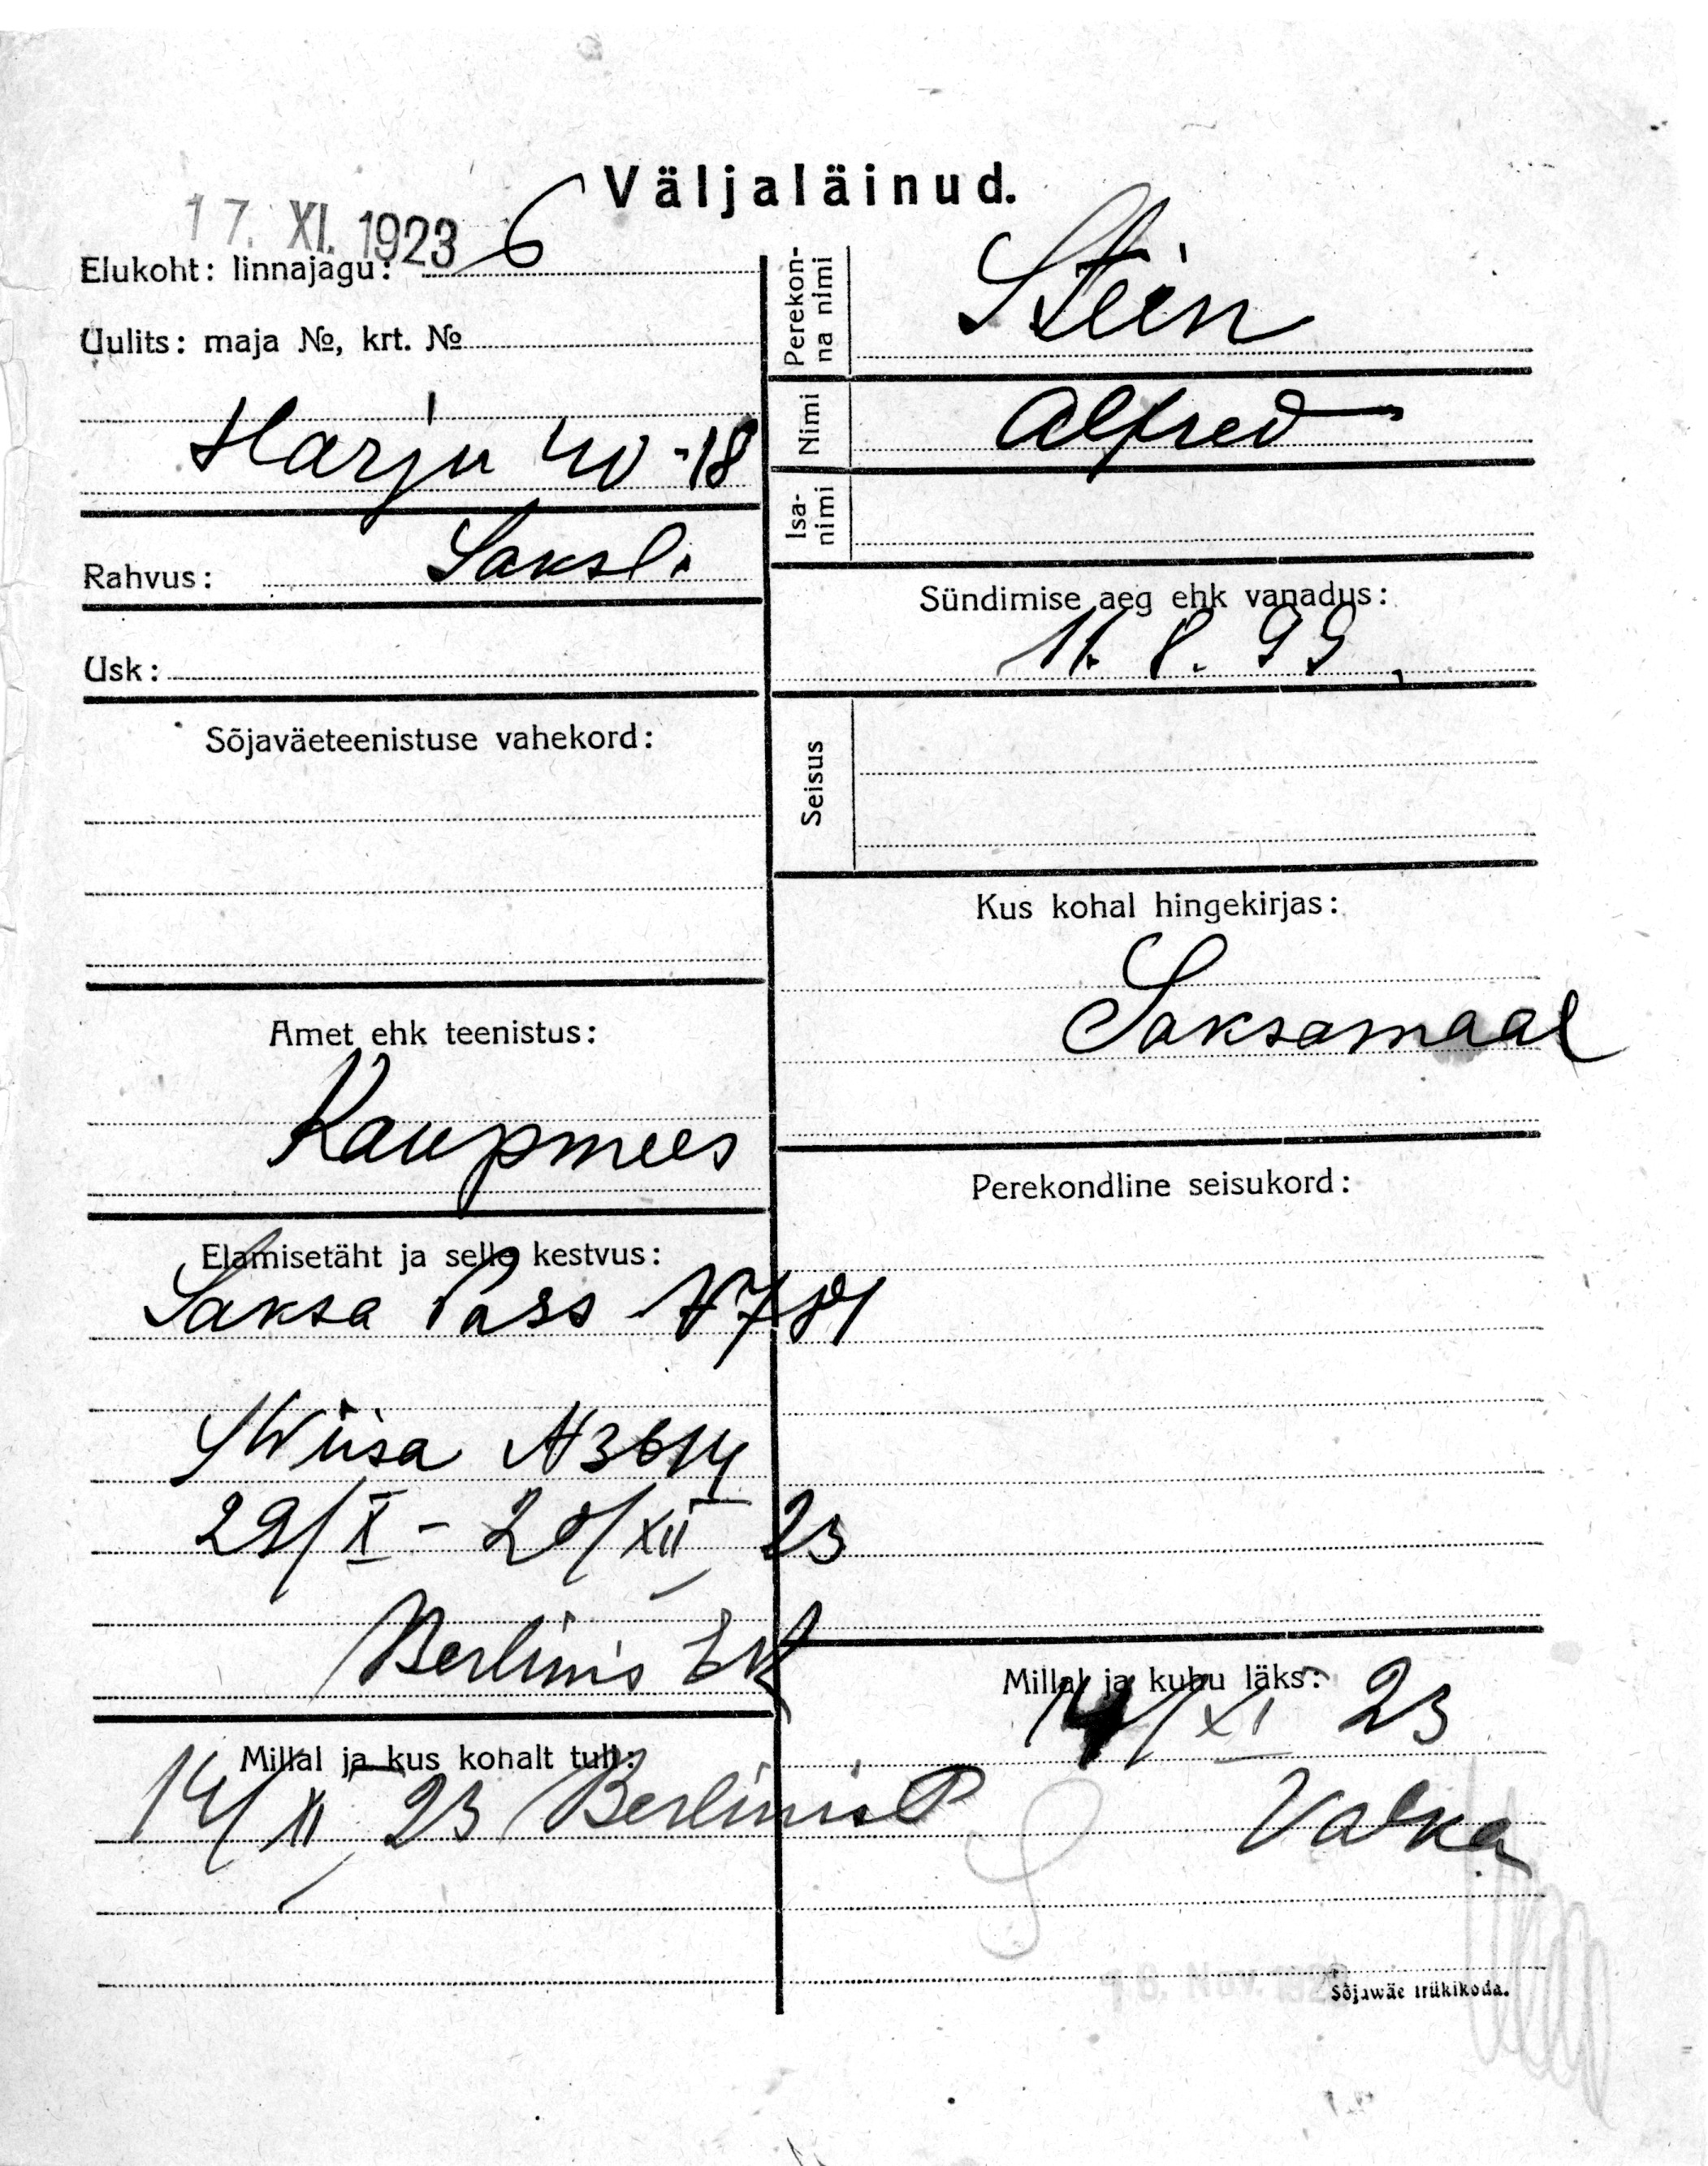 Väljaläinud.
17. XI. 1923
Elukoht: linnajagu: 6
Uulits: maja №, krt. №
Harju 40-18
Rahvus: Saksl.
Usk:
Sõjaväeteenistuse vahekord:
Amet ehk teenistus:
Kaupmees
Elamisetäht ja selle kestvus:
Saksa Pass
Wiisa N 3614
29/X - 20/XII 23
Berlinis
Millal ja kus kohalt tuli:
14/XI 23 Berlinist
Perekonna nimi
Stein
Nimi
Alfred
Isanimi
Sündimise aeg ehk vanadus:
11. 8. 99
Seisus
Kus kohal hingekirjas:
Saksamaal
Perekondline seisukord:
Millal ja kuhu läks:
14/XI 23
Valka
Sõjawäe trükikoda.